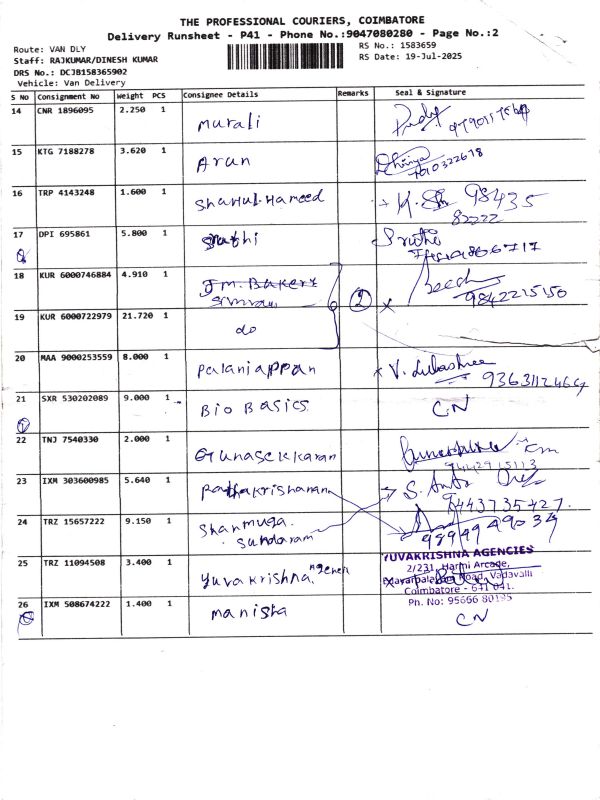 THE PROFESSIONAL COURIERS, COIMBATORE
Delivery Runsheet - P41 - Phone No.:9047080280 - Page No.:2
Route: VAN DLY
Staff: RAJKUMAR/DINESH KUMAR
DRS No.: DCJB158365902
Vehicle: Van Delivery
RS No.: 1583659
RS Date: 19-Jul-2025
S No Consignment No Weight PCS Consignee Details Remarks Seal & Signature
14 CNR 1896095 2.250 1 Murali
15 KTG 7188278 3.620 1 Arun Dhivya
16 TRP 4143248 1.600 1 Shahul Hameed K. 98435
82222
17 DPI 695861 5.800 1
18 KUR 6000746884 4.910 1 J.M. Bakery 2 x
9842215150
19 KUR 6000722979 21.720 1 do
20 MAA 9000253559 8.000 1 Palaniappan V.
21 SXR 530202089 9.000 1 Bio Basics CN
22 TNJ 7540330 2.000 1 Gunasekkaran
9442915113
23 IXM 303600985 5.640 1 S.
9443735427
24 TRZ 15657222 9.150 1 Shanmuga
Sundaram 9894949034
25 TRZ 11094508 3.400 1 Yuvakrishna
YUVAKRISHNA AGENCIES
2/231, Harni Arcade,
Road, Vadavalli
Coimbatore - 641 041.
Ph. No: 95666 80195
26 IXM 508674222 1.400 1 Manisha CN